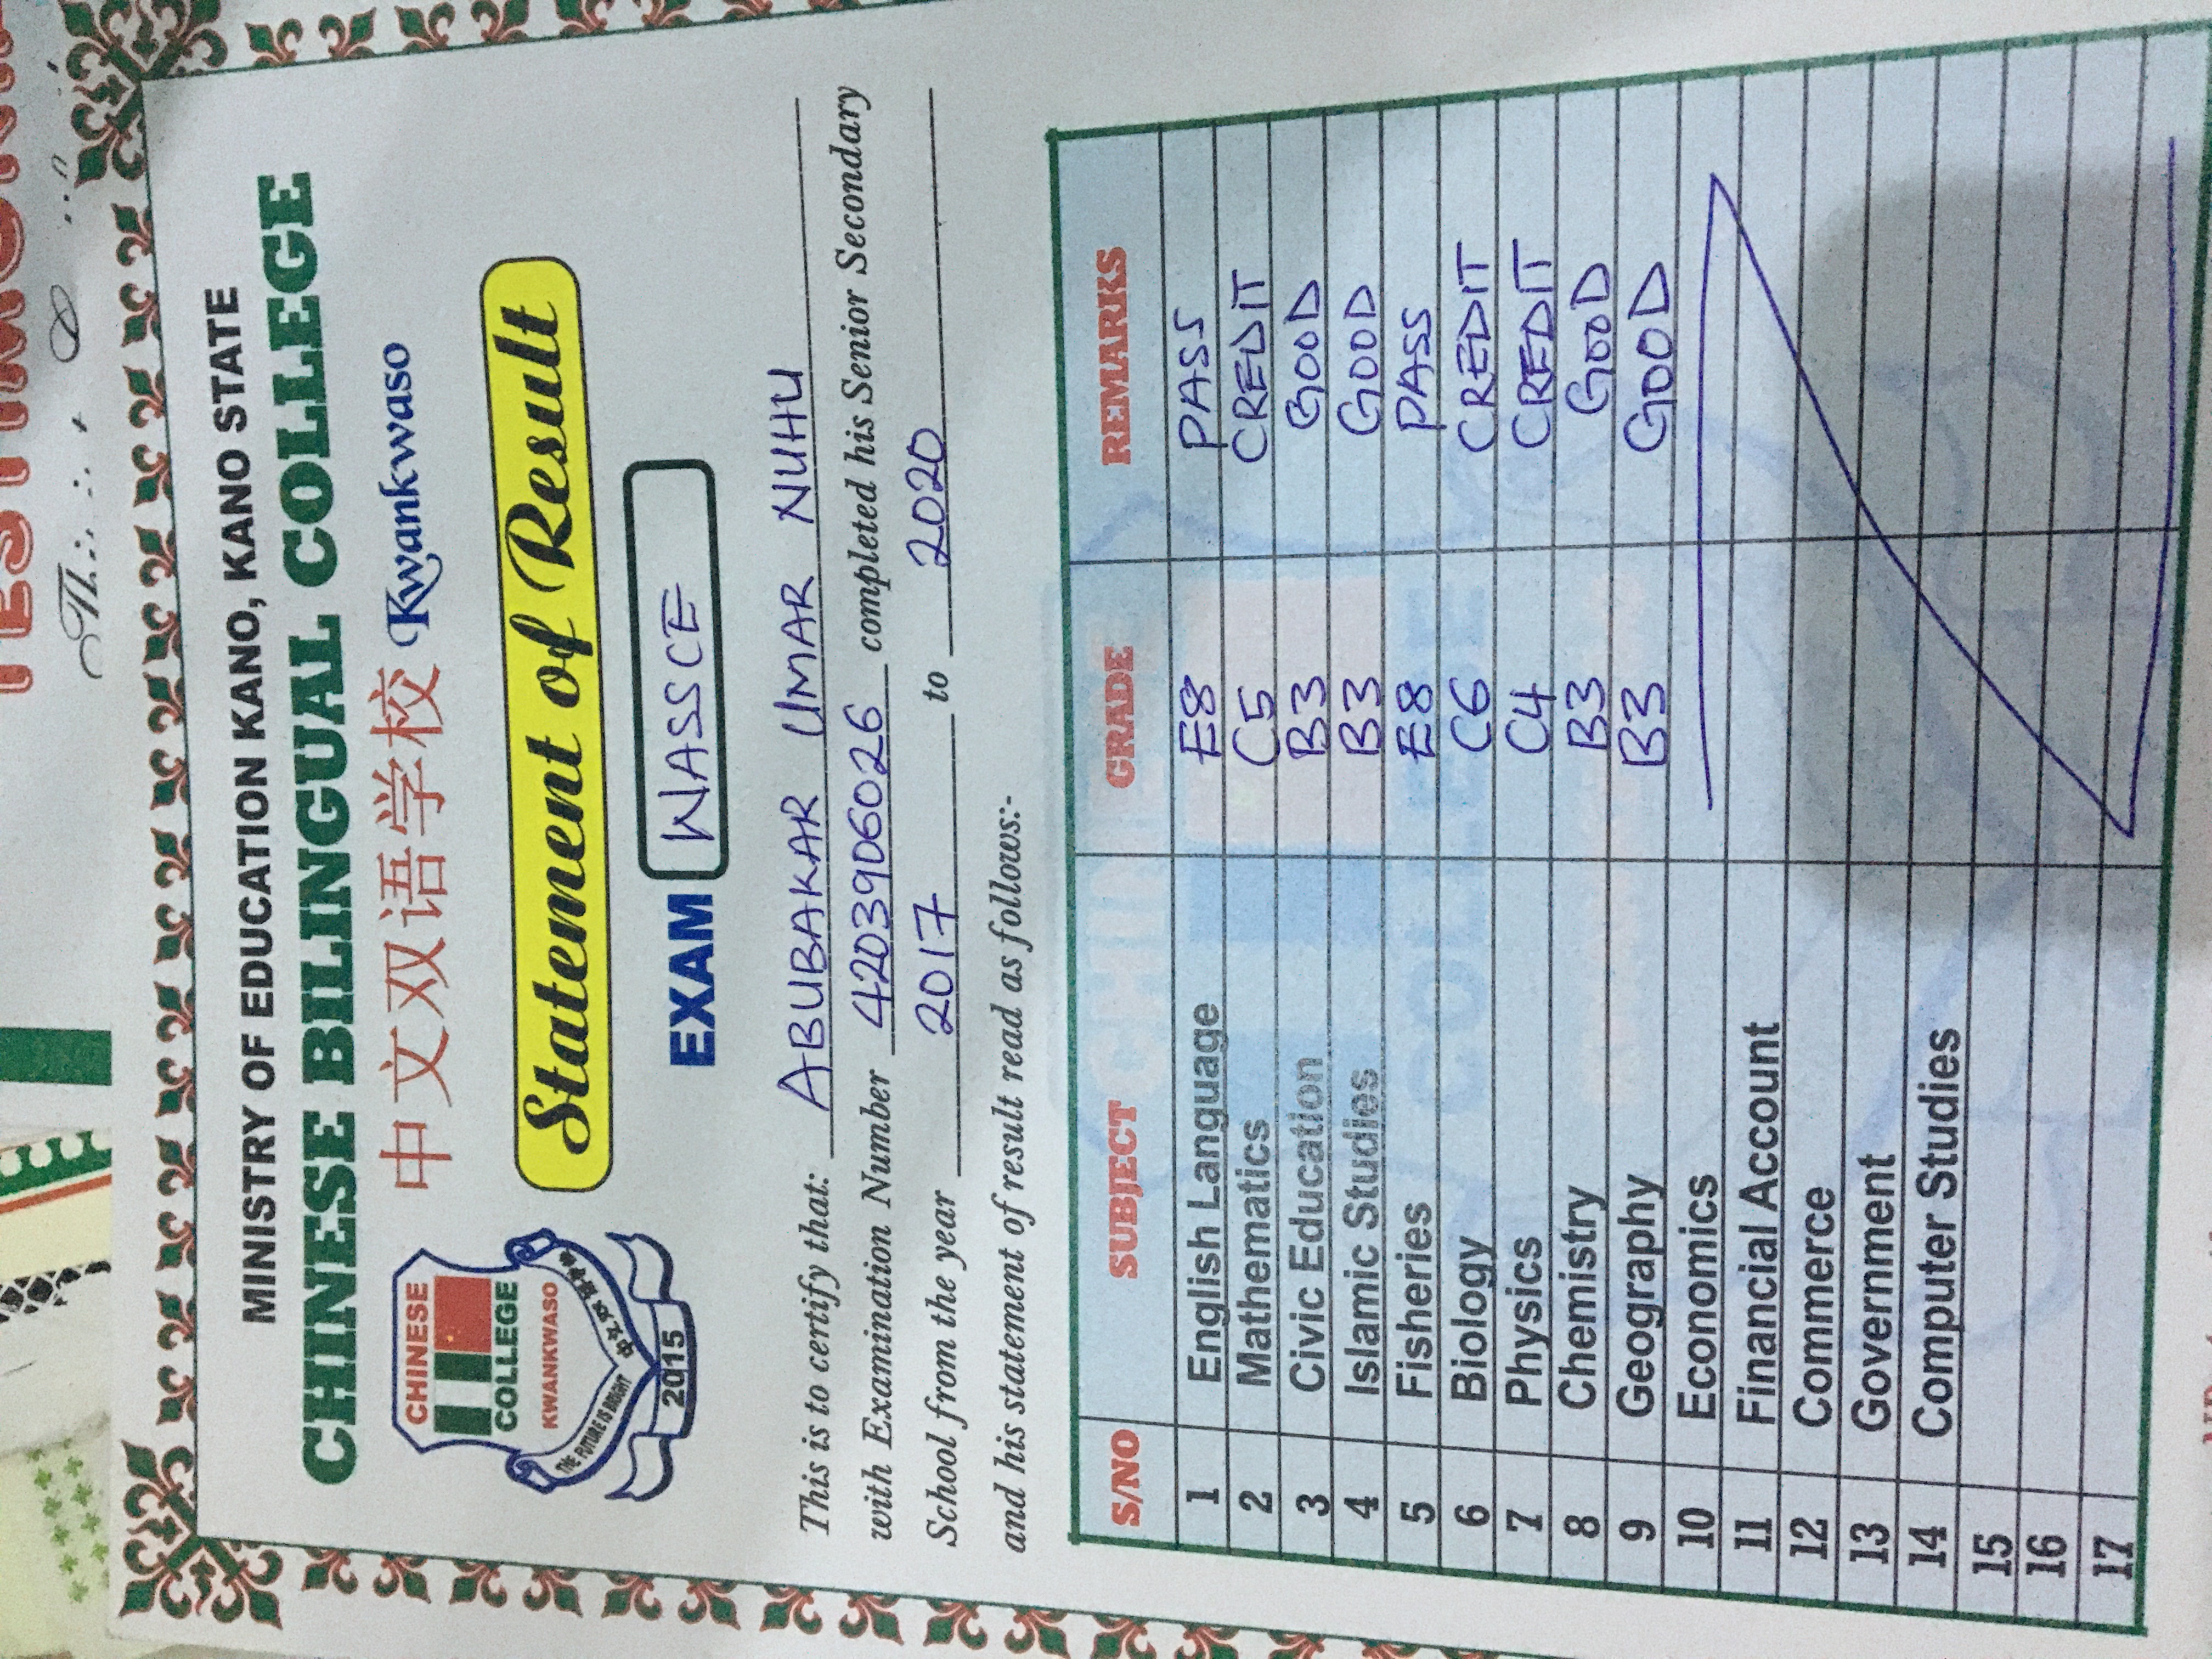 TESTIMONIA
MINISTRY OF EDUCATION KANO, KANO STATE
CHINESE BILINGUAL COLLEGE
中文双语学校 Kwankwaso
CHINESE
COLLEGE
KWANKWASO
THE FUTURE IS BRIGHT 中文双语学校
2015
Statement of Result
EXAM WASSCE
This is to certify that: ABUBAKAR UMAR NUHU
with Examination Number 4203906026 completed his Senior Secondary
School from the year 2017 to 2020
and his statement of result read as follows:-
S/NO SUBJECT GRADE REMARKS
1 English Language E8 PASS
2 Mathematics C5 CREDIT
3 Civic Education B3 GOOD
4 Islamic Studies B3 GOOD
5 Fisheries E8 PASS
6 Biology C6 CREDIT
7 Physics C4 CREDIT
8 Chemistry B3 GOOD
9 Geography B3 GOOD
10 Economics
11 Financial Account
12 Commerce
13 Government
14 Computer Studies
15
16
17